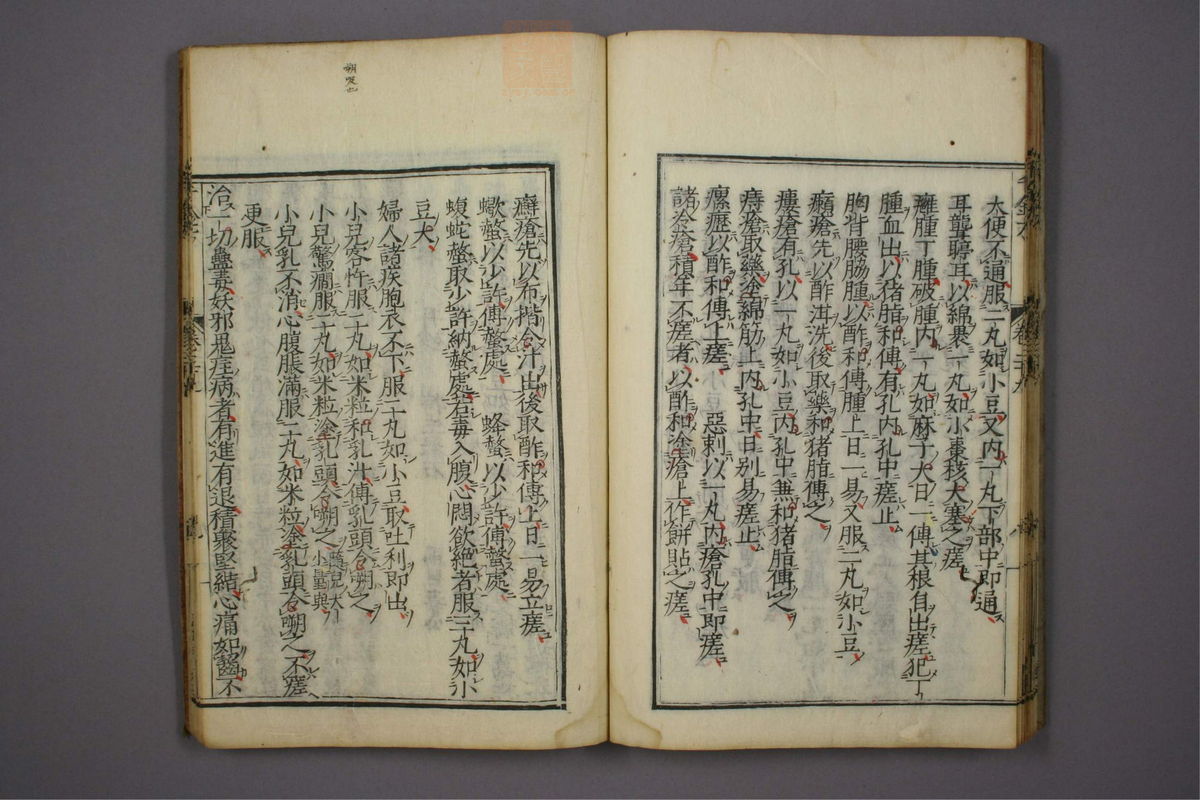 大便不通服二丸如小豆又内一丸下部中即通
耳聾聤耳以綿裹一丸如小棗核大塞之瘥
癰腫丁腫破腫内一丸如麻子大日一傅其根自出瘥犯丁
腫血出以猪脂和傅有孔内孔中瘥止
胸背腰脇腫以酢和傅腫上日一易又服二丸如小豆
癩瘡先以酢泔洗後取藥和猪脂傅之
瘻瘡有孔以一丸如小豆内孔中兼和猪脂傅之
痔瘡取藥塗綿筋上内孔中日別易瘥止
瘰癧以酢和傅上瘥　惡刺以一丸内瘡孔中即瘥
諸瘡積年不瘥者以酢和塗瘡上作餅貼之瘥
癬瘡先以布揩令汗出後取酢和傅上日一易立瘥
蠍螫以少許傅螫處　蜂螫以少許傅螫處
蝮蛇螫取少許納螫處若毒入腹心悶欲絶者服三丸如小
豆大
婦人諸疾胞衣不下服二丸如小豆取吐利即出
小兒客忤服二丸如米粒和乳汁傅乳頭令嗍之
小兒驚癇服二丸如米粒塗乳頭令嗍之看兒大小量與
小兒乳不消心腹脹滿服二丸如米粒塗乳頭令嗍之不瘥
更服
治一切蠱毒妖邪鬼疰病者有進有退積聚堅結心痛如齧不
嗍